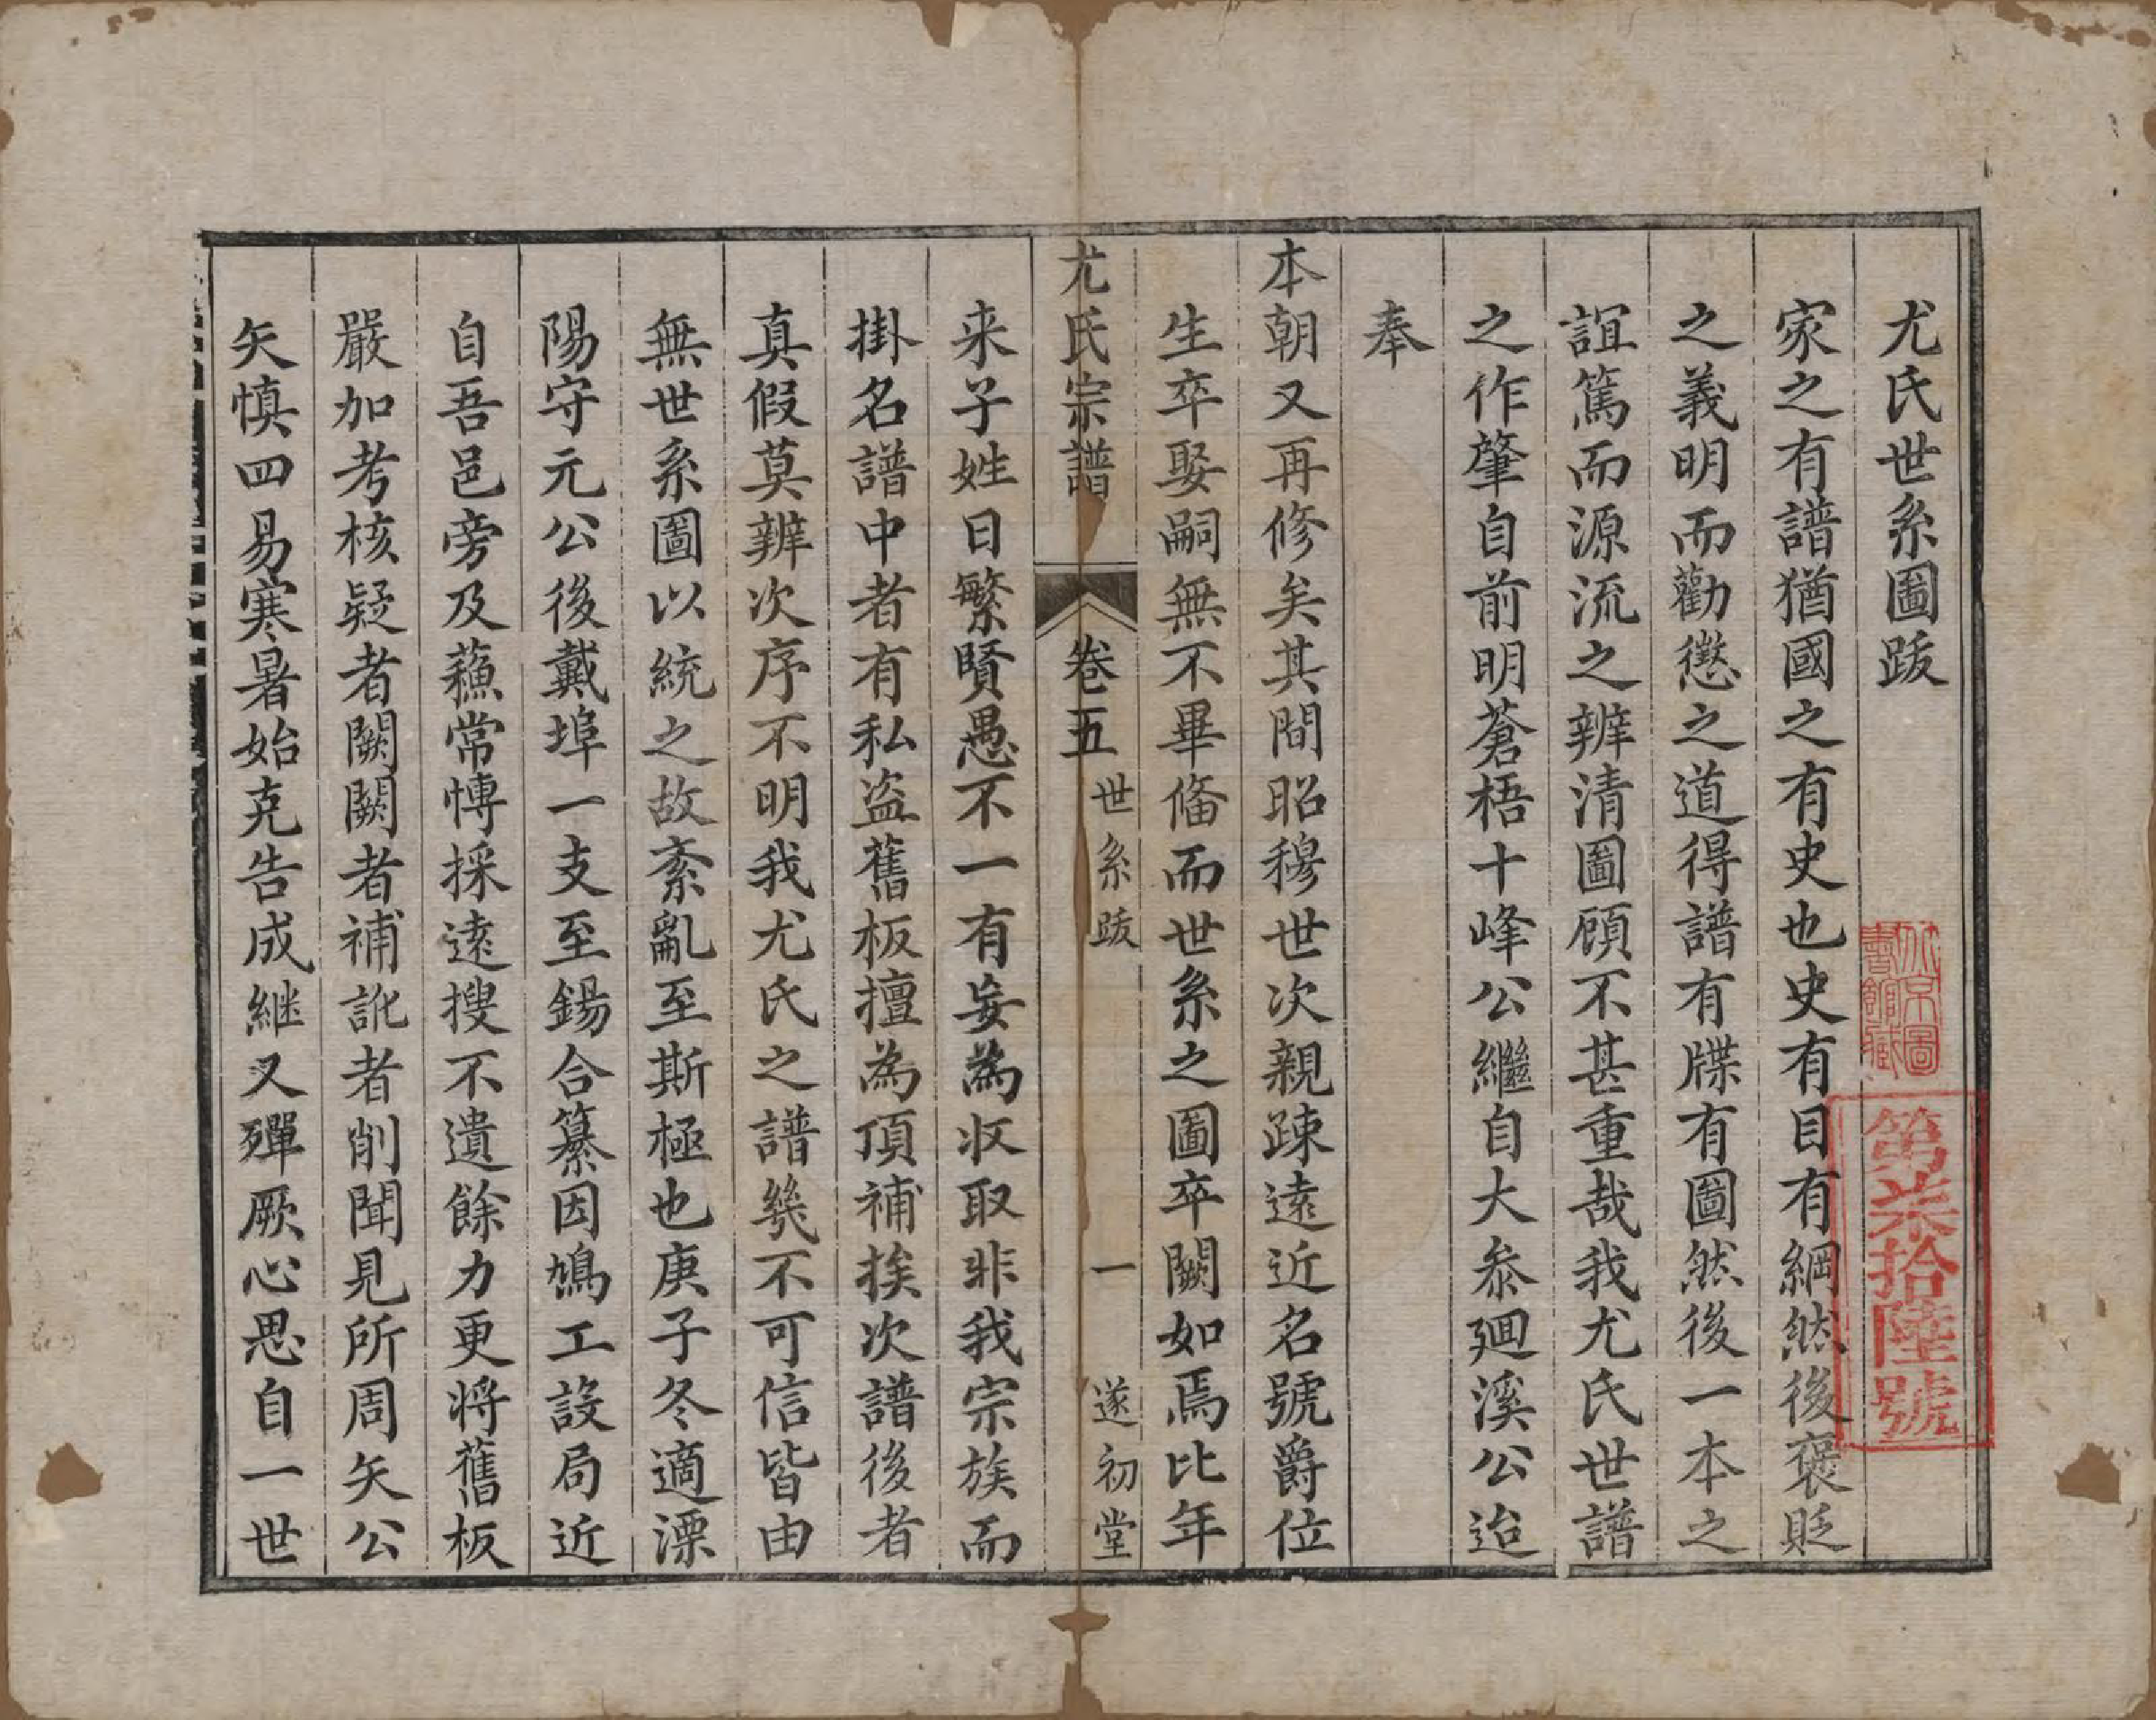 尤氏世系圖跋
家之有譜猶國之有史也史有目有綱然後褒貶
之義明而勸懲之道得譜有牒有圖然後一本之
誼篤而源流之辨清圖顧不甚重哉我尤氏世譜
之作肇自前明蒼梧十峰公繼自大叅廻溪公迨
奉
本朝又再修矣其間昭穆世次親踈逺近名號爵位
生卒娶嗣無不畢偹而世系之圖卒闕如焉比年
尤氏宗譜
卷五
世系跋
一
遂初堂
来子姓日繁賢愚不一有妄為収取非我宗族而
掛名譜中者有私盗舊板擅為頂補挨次譜後者
真假莫辨次序不明我尤氏之譜幾不可信皆由
無世系圖以統之故紊亂至斯極也庚子冬適溧
陽守元公後戴埠一支至錫合纂因鳩工設局近
自吾邑旁及蘓常愽採逺搜不遺餘力更将舊板
嚴加考核疑者闕闕者補訛者削聞見所周矢公
矢慎四易寒暑始克告成継又殫厥心思自一世
北京圖書館藏
第柒拾陸號